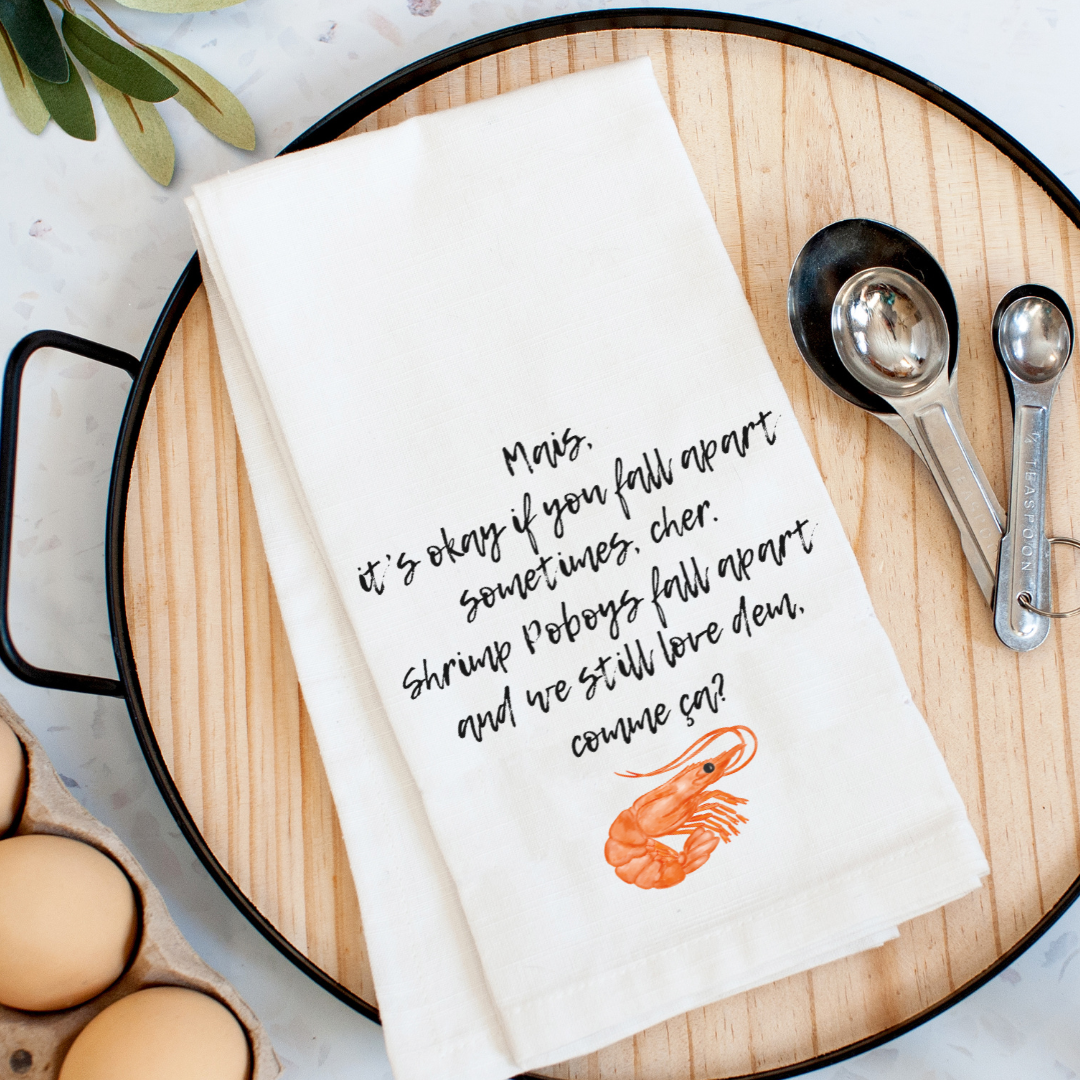 Mais,
it's okay if you fall apart
sometimes, cher.
Shrimp Poboys fall apart
and we still love dem,
comme ça?
¼ TEASPOON